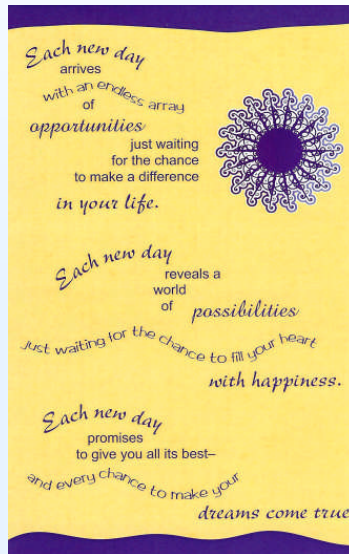 Each new day
arrives
with an endless array
of
opportunities
just waiting
for the chance
to make a difference
in your life.
Each new day
reveals a
world
of
possibilities
just waiting for the chance to fill your heart
with happiness.
Each new day
promises
to give you all its best–
and every chance to make your
dreams come true